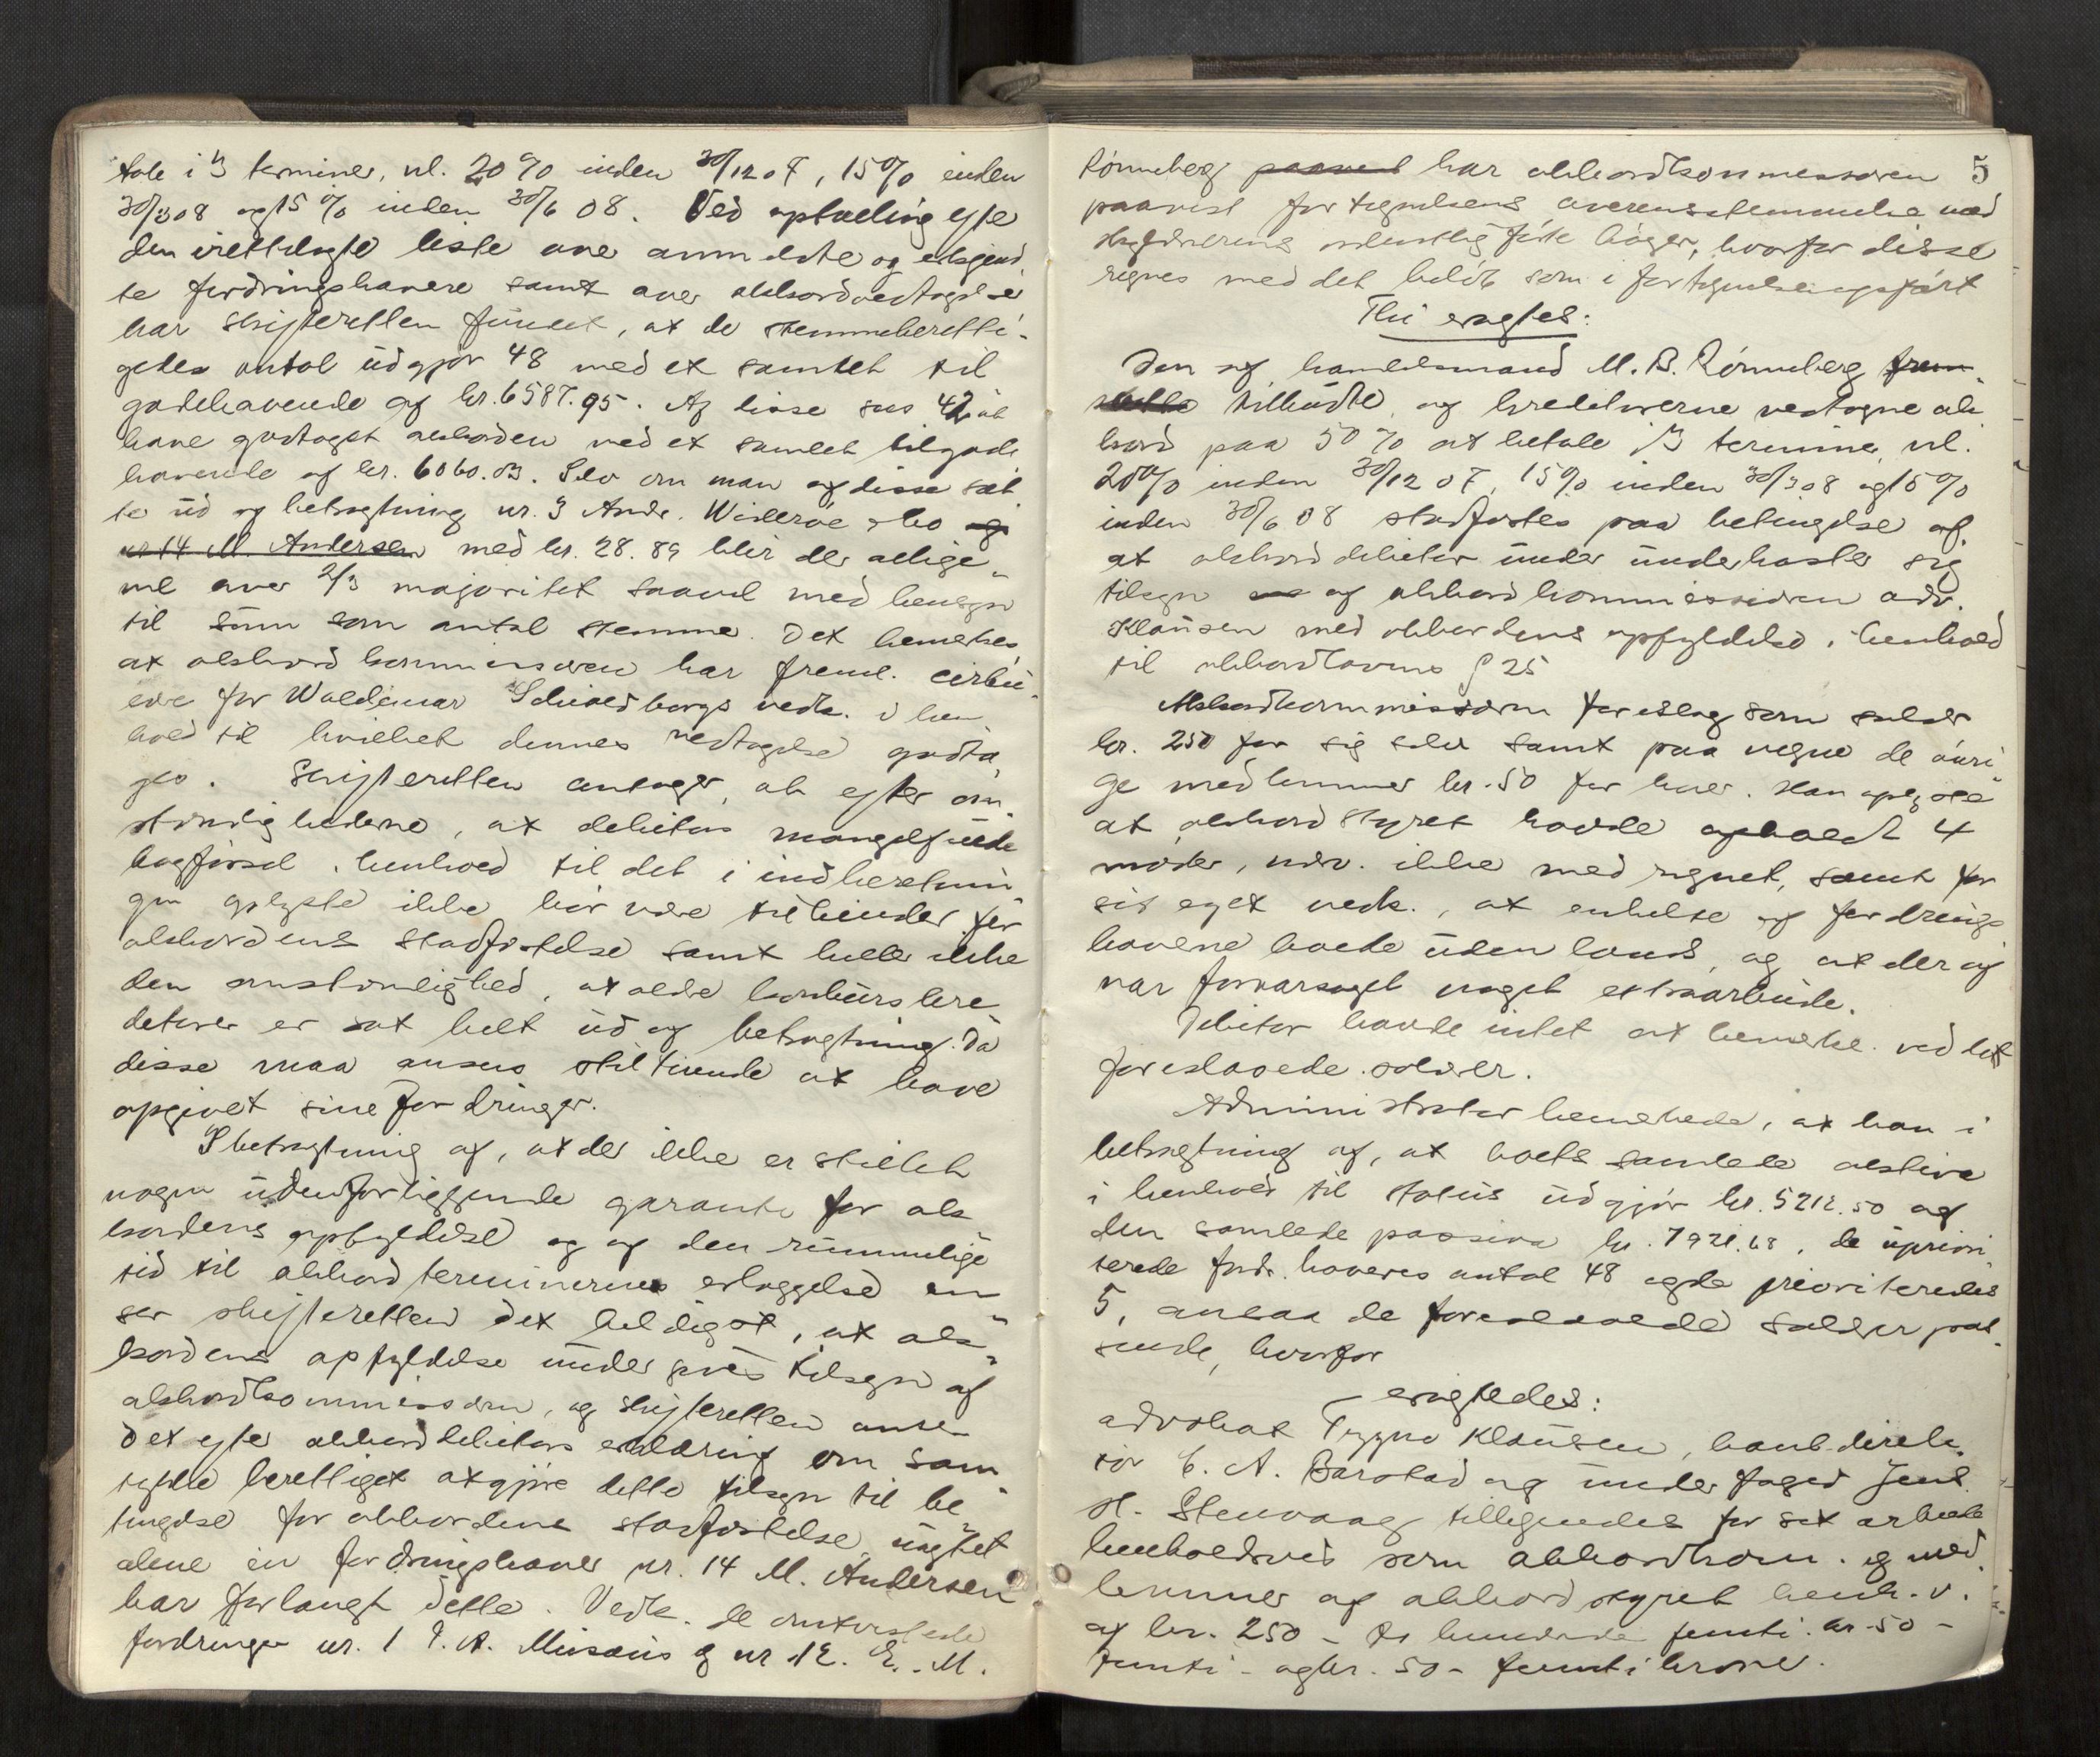 tale i 3 terminer, nl. 20 % inden 30/12 07, 15 % inden
30/3 08 og 15 % inden 30/6 08. Ved optælling efter
den irettelagte liste over anmeldte og erkjend
te fordringshavere samt over akkordvedtagelser
har skifteretten fundet, at de stemmeberetti-
gedes antal udgjør 48 med et samlet til
godehavende af kr. 6587.95. Af disse sees 42 at
have godtaget akkorden med et samlet tilgode
havende af kr. 6060.03. Selv om man af disse sæt
ter ud og betragtning nr. 3 Andr. Widerøe & Co og
nr 14 M. Andersen med kr. 28.89 blir der allige-
vel over 2/3 majoritet saavel med hensyn
til sum som antal stemmer. Det bemerkes,
at akkordkommissæren har freml. cirku-
lære for Waldemar vedk. i hen
hold til hvilket dennes vedtagelse godta
ges. Skifteretten antager, at efter om-
stændighederne, at debitors mangelfulde
bogførsel i henhold til det i indberetnin
gen oplyste ikke bør være til hinder for
akkordens stadfæstelse samt heller ikke
den omstændighed, at ældre konkurskre-
ditorer er sat helt ud af betragtning. Da
disse maa ansees stiltiende at have
opgivet sine fordringer.
I betragtning af, at der ikke er stillet
nogen udenforliggende garanti for ak-
kordens opfyldelse og af den rummelige
tid til akkordterminernes erlæggelse an-
ser skifteretten det heldigst, at ak-
kordens opfyldelse under gives tilsyn af
akkordkommissæren, og skifteretten anser
det efter akkorddebitors erklæring om sam-
tykke berettiget at gjøre dette tilsyn til be-
tingelse for akkordens stadfæstelse uagtet
alene én fordringshaver nr. 14 M. Andersen
har forlangt dette. Vedk. de omtvistede
fordringer nr. 1 I. A. Musæus & nr 12. E. M.
Rønneberg paavist har akkordkommissæren 5
paavist fortegnelsens overensstemmelse med
skyldnerens ordentlig førte bøger, hvorfor disse
regnes med det beløb som i fortegnelsen opført
Thi eragtes:
Den af handelsmand M. B. Rønneberg frem-
satte tilbudte og kreditorerne vedtagne ak
kord paa 50 % at betale i 3 terminer, nl.
20 % inden 30/12 07, 15 % inden 30/3 08 og 15 %
inden 30/6 08 stadfæstes paa betingelse af,
at akkorddebitor under underkaster sig
tilsyn af akkordkommissæren adv.
Klausen med akkordens opfyldelse i henhold
til akkordlovens § 25
Akkordkommissæren foreslog som salær
kr. 250 for sig selv samt paa vegne de øvri-
ge medlemmer kr. 50 for hver. Han oplyste
at akkordstyret havde afholdt 4
møder, nærv. ikke medregnet, samt for
sit eget vedk., at enkelte af fordrings
haverne boede udenlands, og at der af
var foraarsaget noget extraarbeide.
Debitor havde intet at bemerke ved det
foreslaaede salær.
Administrator bemerkede, at han i
betragtning af, at boets samlede aktiva
i henhold til status udgjør kr. 5212.50 og
den samlede passiva kr. 7921.68, de uprio
terede fordr. haveres antal 48 og de prioriteredes
5, ansaa de foreslaaede salærer pas-
sende, hvorfor
eragtedes:
advokat Trygve Klausen, bankdirek-
tør C. A. Barstad og underfoged Jens
H. Stenvaag tillegendes for sit arbeide
henholdsvis som akkordkom. og med
lemmer af akkordstyret henh. v.
af kr. 250 – to hundrede femti. kr. 50 –
femti – og kr. 50 – femti kroner.